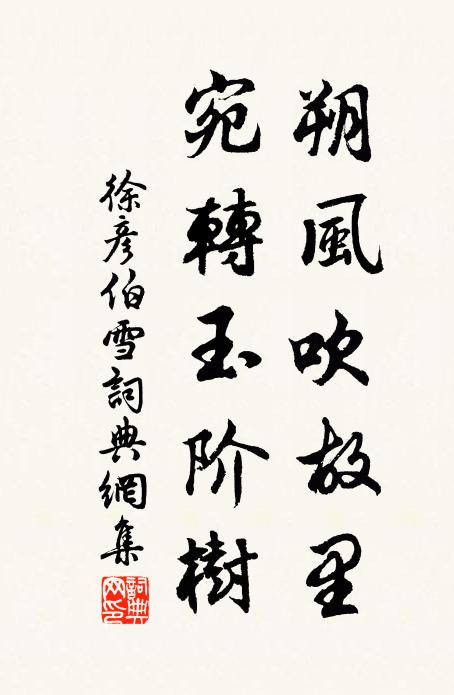 朔風吹故里
宛轉玉阶樹
徐彥伯雪詞典網集
詞典
网印